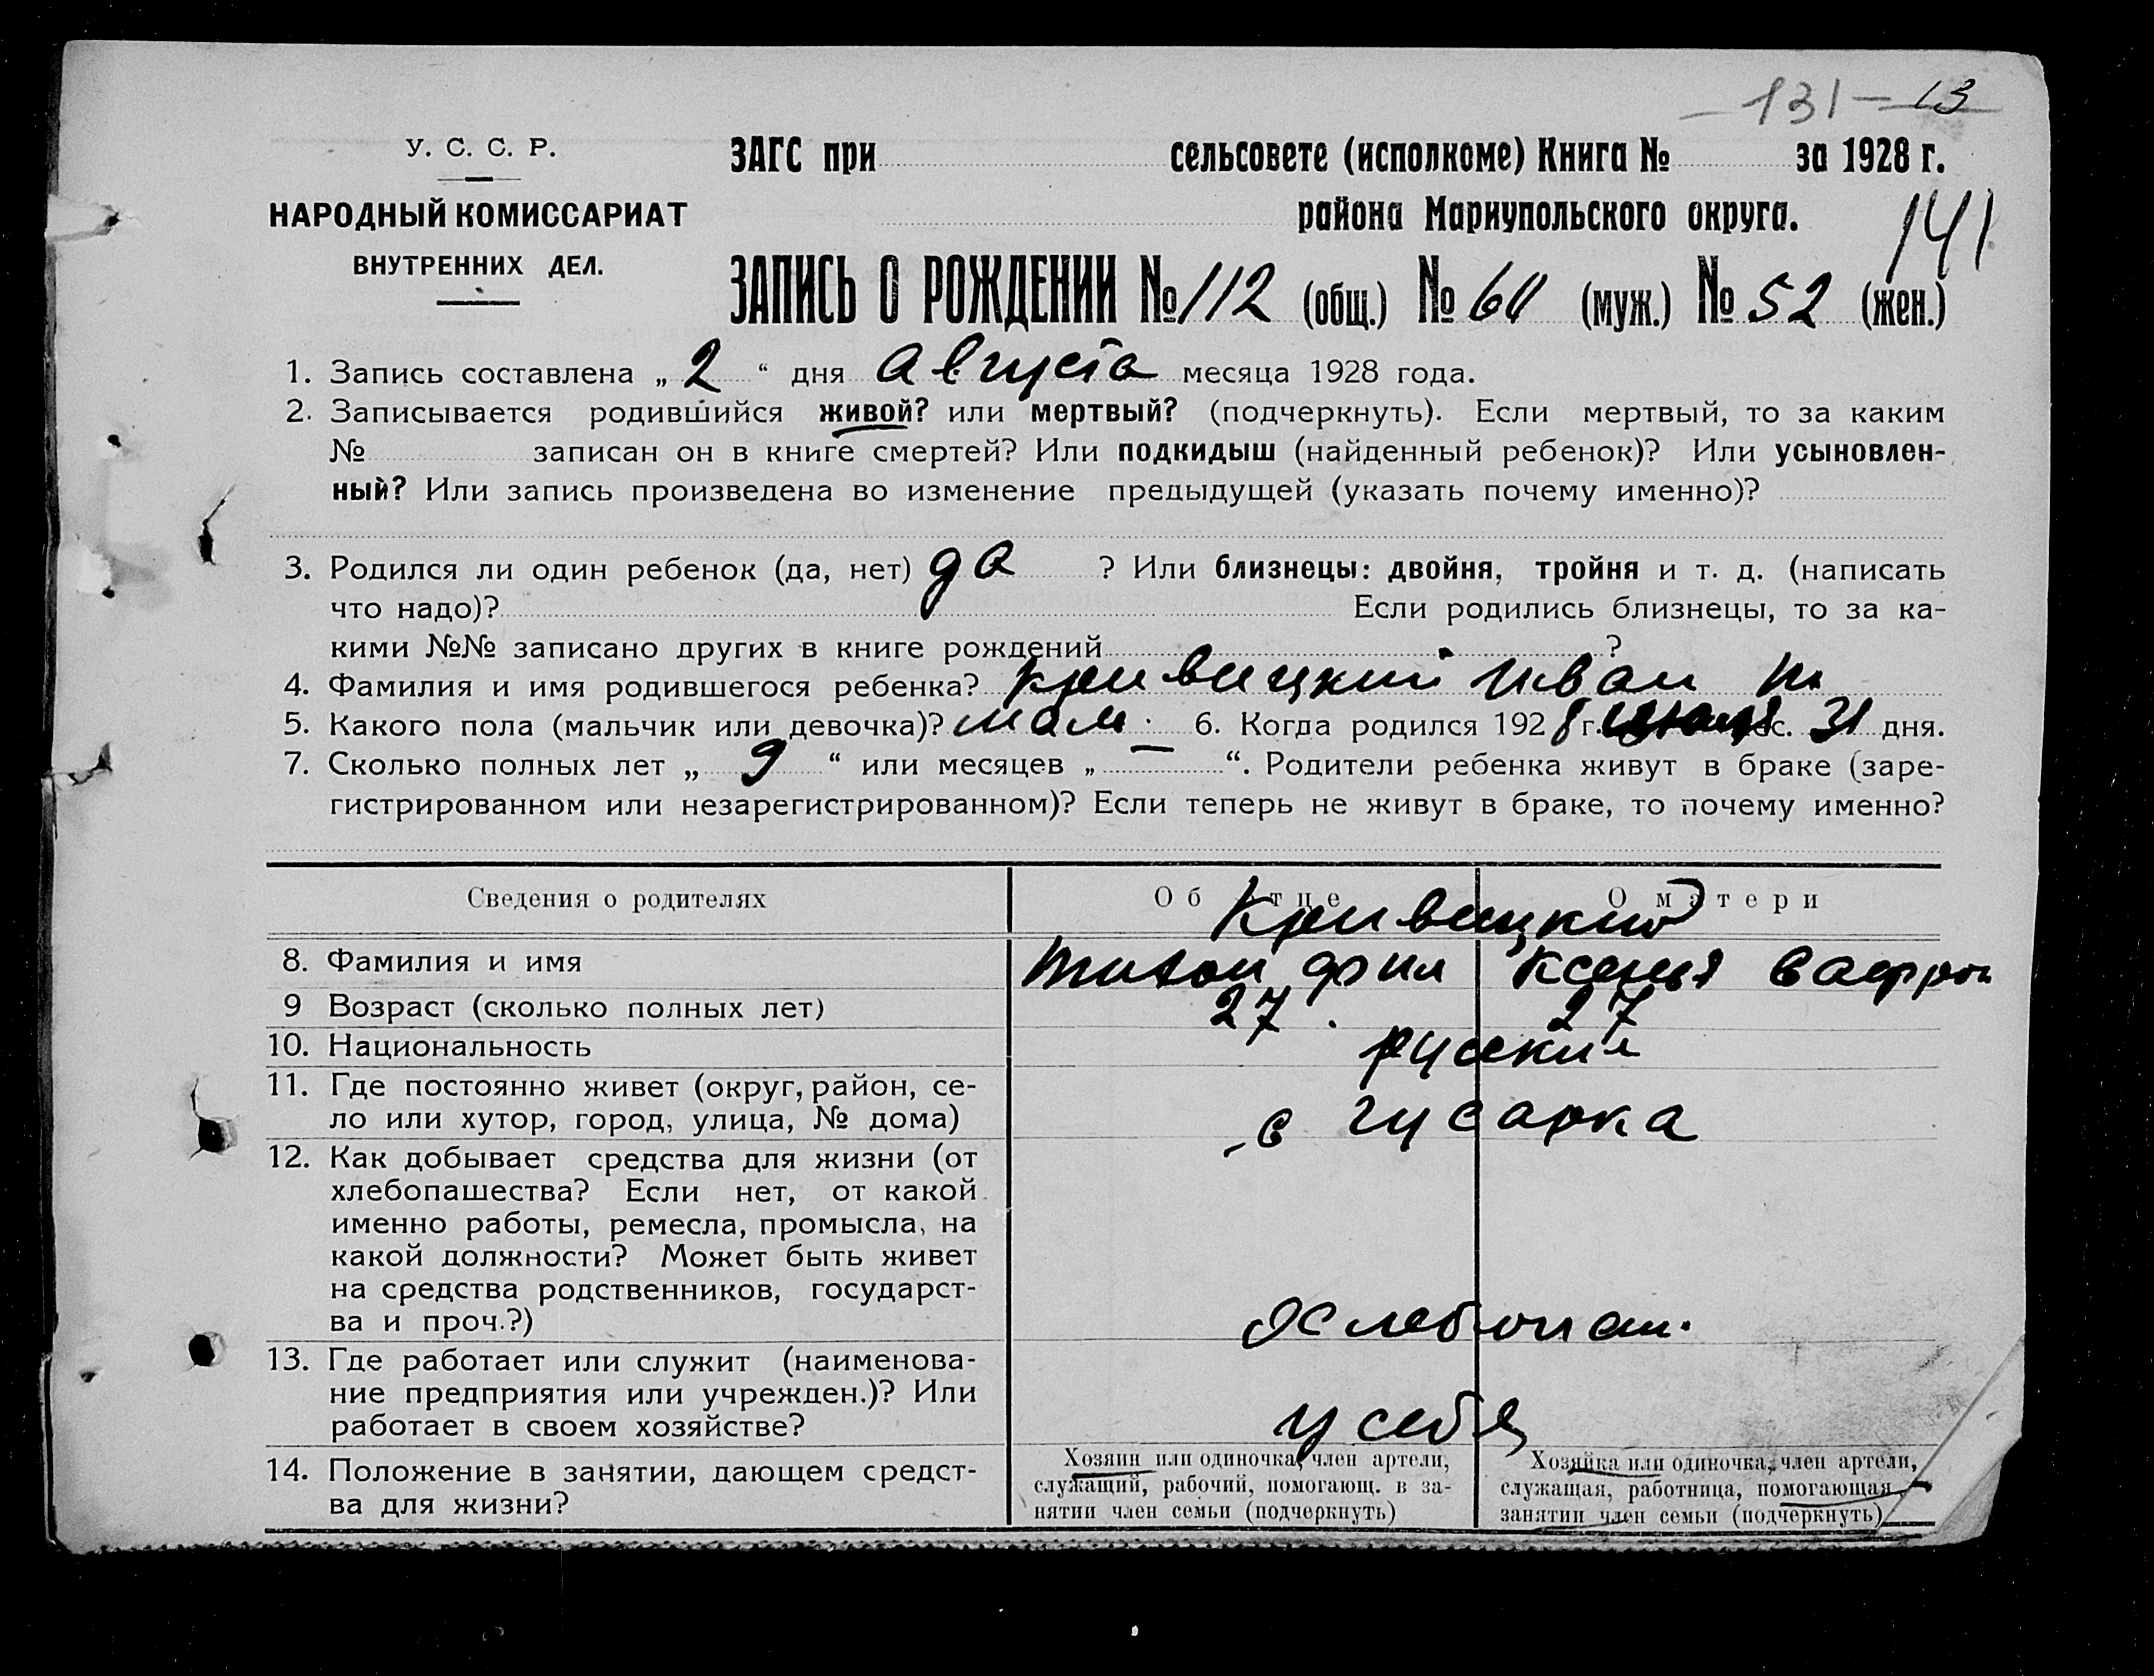 131 — 13
У. С. С. Р.
ЗАГС при сельсовете (исполкоме) Книга № за 1928 г.
НАРОДНЫЙ КОМИССАРИАТ
района Мариупольского округа.
141
ВНУТРЕННИХ ДЕЛ.
ЗАПИСЬ О РОЖДЕНИИ № 112 (общ.) № 60 (муж.) № 52 (жен.)
1. Запись составлена „ 2 “ дня Августа месяца 1928 года.
2. Записывается родившийся живой? или мертвый? (подчеркнуть). Если мертвый, то за каким
№ записан он в книге смертей? Или подкидыш (найденный ребенок)? Или усыновлен-
ный? Или запись произведена во изменение предыдущей (указать почему именно)?
3. Родился ли один ребенок (да, нет) да ? Или близнецы: двойня, тройня и т. д. (написать
что надо)? Если родились близнецы, то за ка-
кими №№ записано других в книге рождений ?
4. Фамилия и имя родившегося ребенка? Кривицкий Иван Т
5. Какого пола (мальчик или девочка)? мал. 6. Когда родился 1928 г. мес. 31 дня.
7. Сколько полных лет „ 9 “ или месяцев „ — “. Родители ребенка живут в браке (заре-
гистрированном или незарегистрированном)? Если теперь не живут в браке, то почему именно?
Сведения о родителях Об отце О матери
Кривицкий
8. Фамилия и имя Тихон фил Ксенья
9 Возраст (сколько полных лет) 27. 27
10. Национальность русские
11. Где постоянно живет (округ, район, се-
ло или хутор, город, улица, № дома) с Гусарка
12. Как добывает средства для жизни (от
хлебопашества? Если нет, от какой
именно работы, ремесла, промысла, на
какой должности? Может быть живет
на средства родственников, государст-
ва и проч.?) Хлебопаш.
13. Где работает или служит (наименова-
ние предприятия или учрежден.)? Или
работает в своем хозяйстве? у себя
14. Положение в занятии, дающем средст-
ва для жизни?
Хозяин или одиночка, член артели,
служащий, рабочий, помогающ. в за-
нятии член семьи (подчеркнуть)
Хозяйка или одиночка, член артели,
служащая, работница, помогающая
занятии член семьи (подчеркнуть)